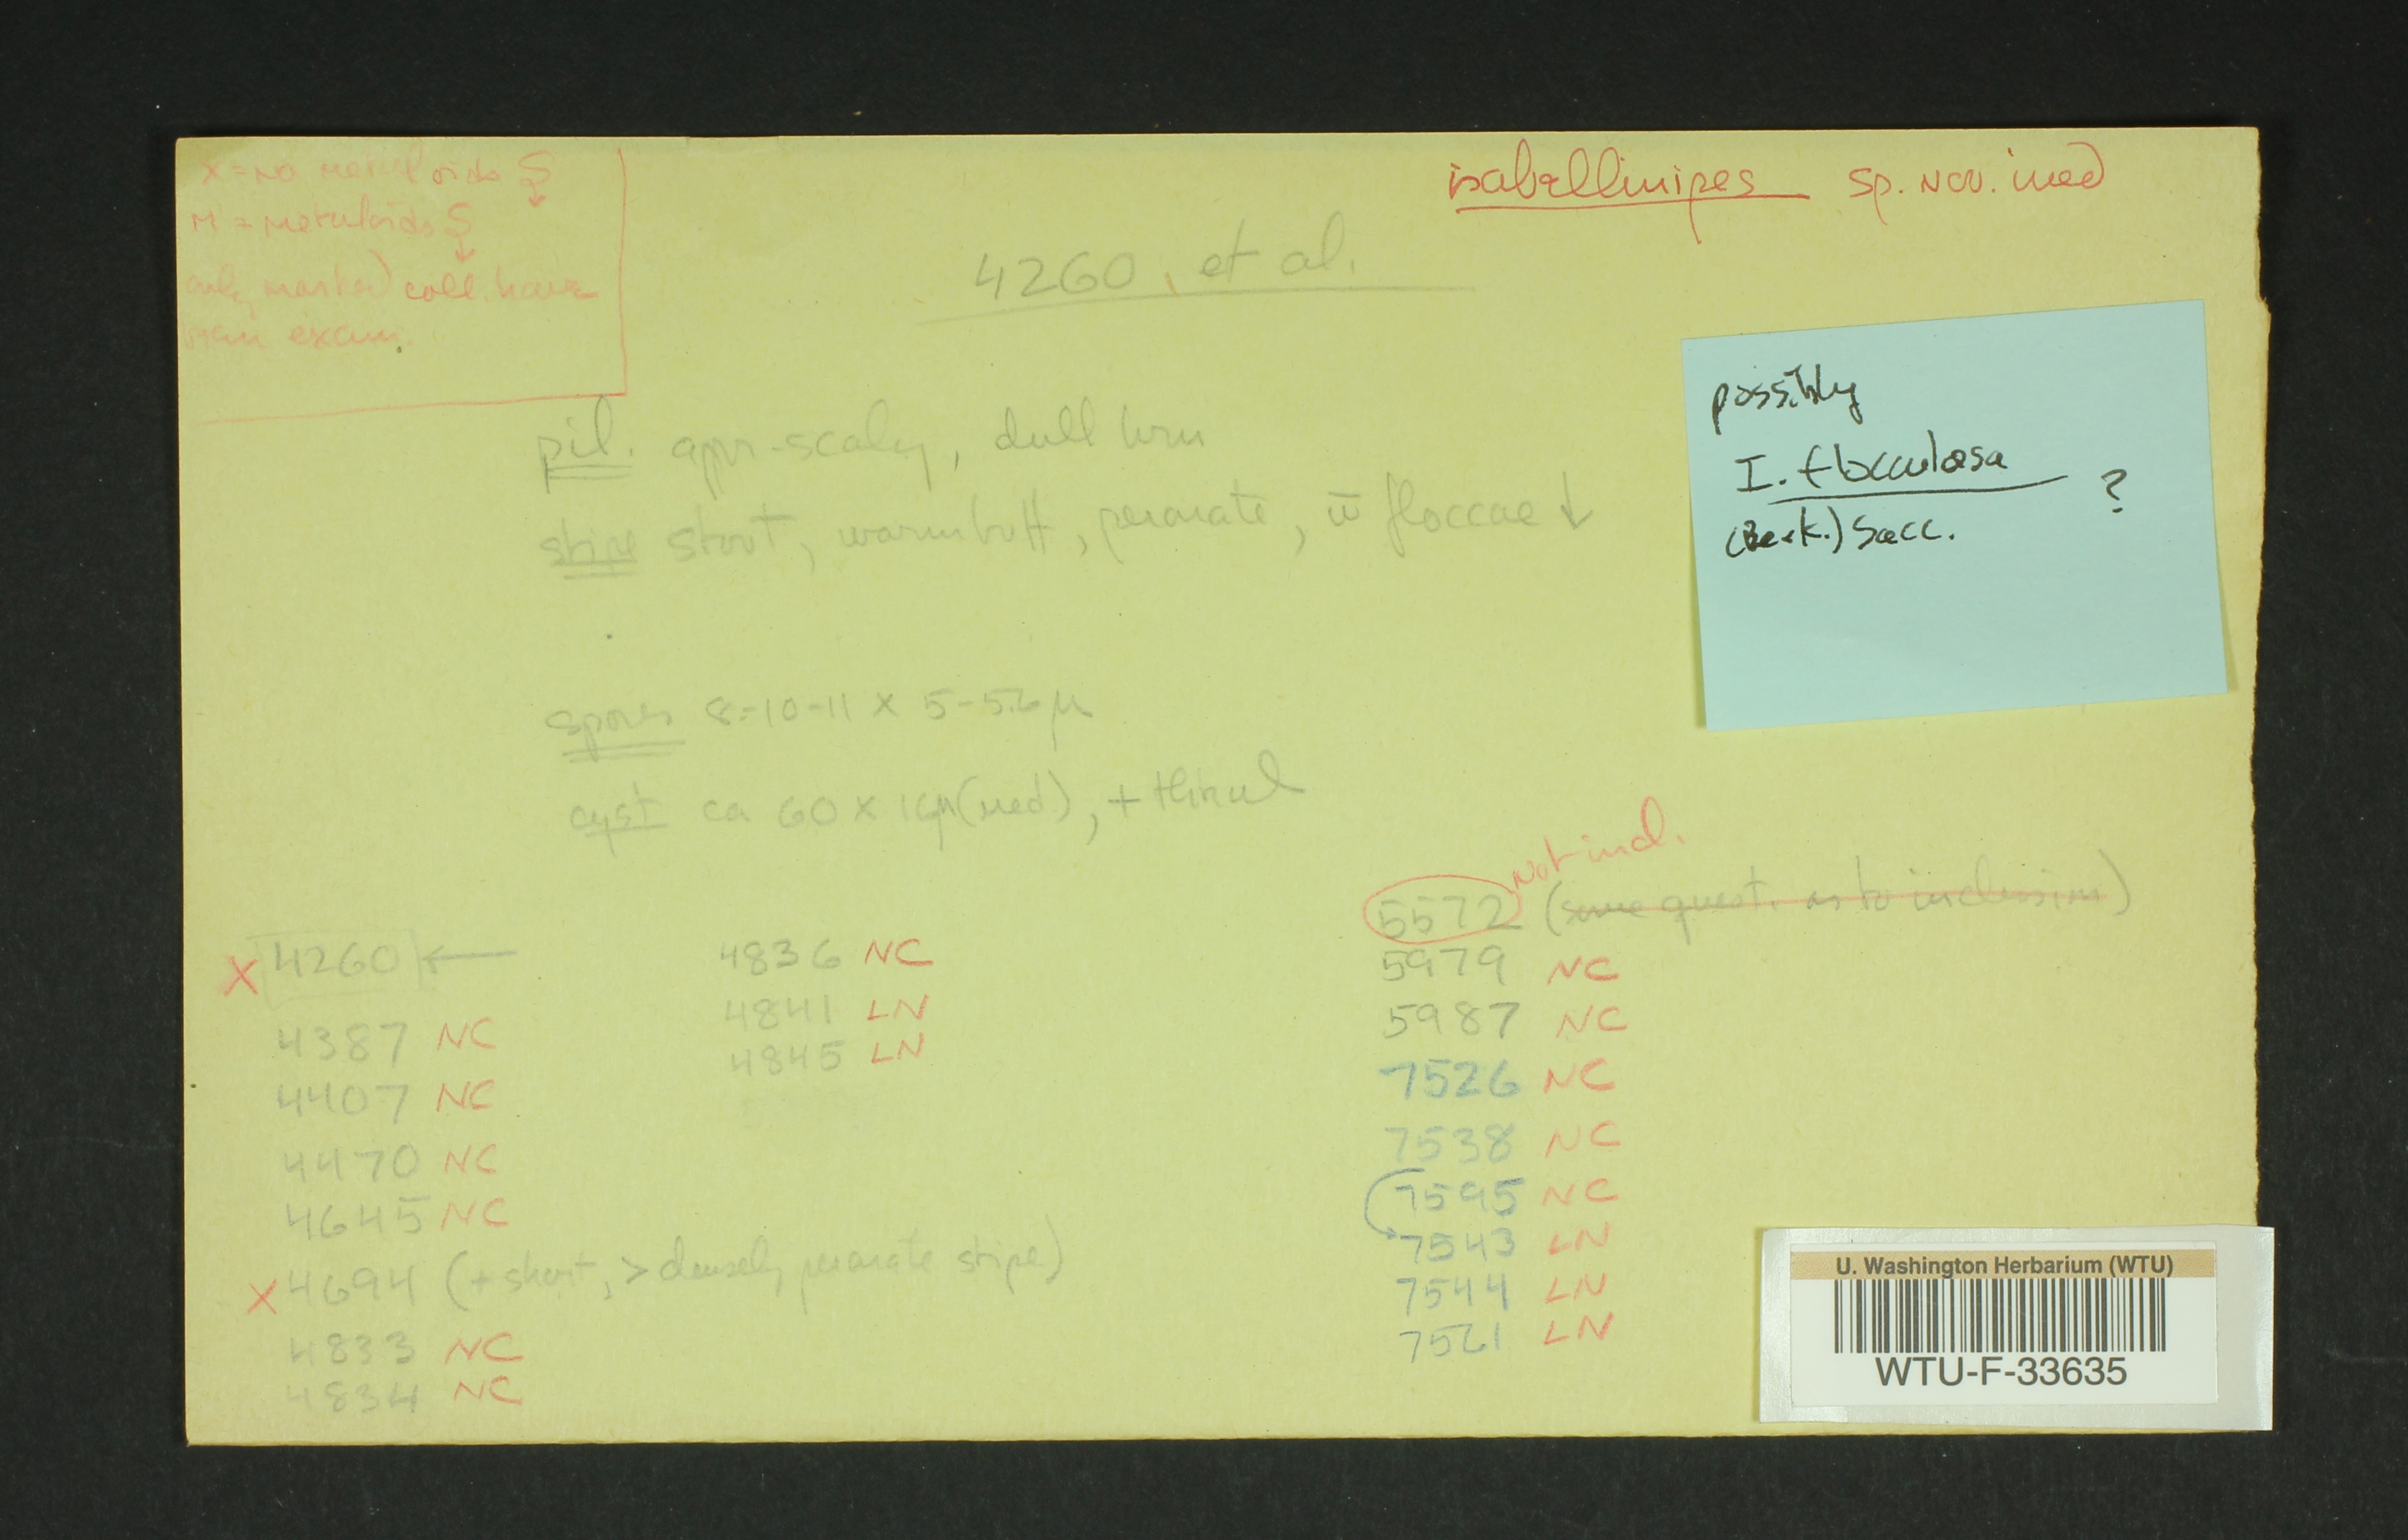 X = No metuloids S↓
M = metuloids S↓
only marked coll. have
been exam.
isabellinipes sp. nov. ined
4260, et al.
possibly
I. flocculosa ?
(Berk.) Sacc.
pil. appr-scaly, dull brn
stipe stout, warm buff, peronate, w̄ floccae ↓
spores 8-10-11 x 5-5.6 µ
cyst ca 60 x 16µ (med), + thin
Not incl.
5572 (some quest. as to inclusion)
X 4260 ←
4387 NC
4407 NC
4470 NC
4645 NC
X 4694 (+ short, > densely peronate stipe)
4833 NC
4834 NC
4836 NC
4841 LN
4845 LN
5979 NC
5987 NC
7526 NC
7538 NC
7595 NC
7543 LN
7544 LN
7561 LN
U. Washington Herbarium (WTU)
WTU-F-33635